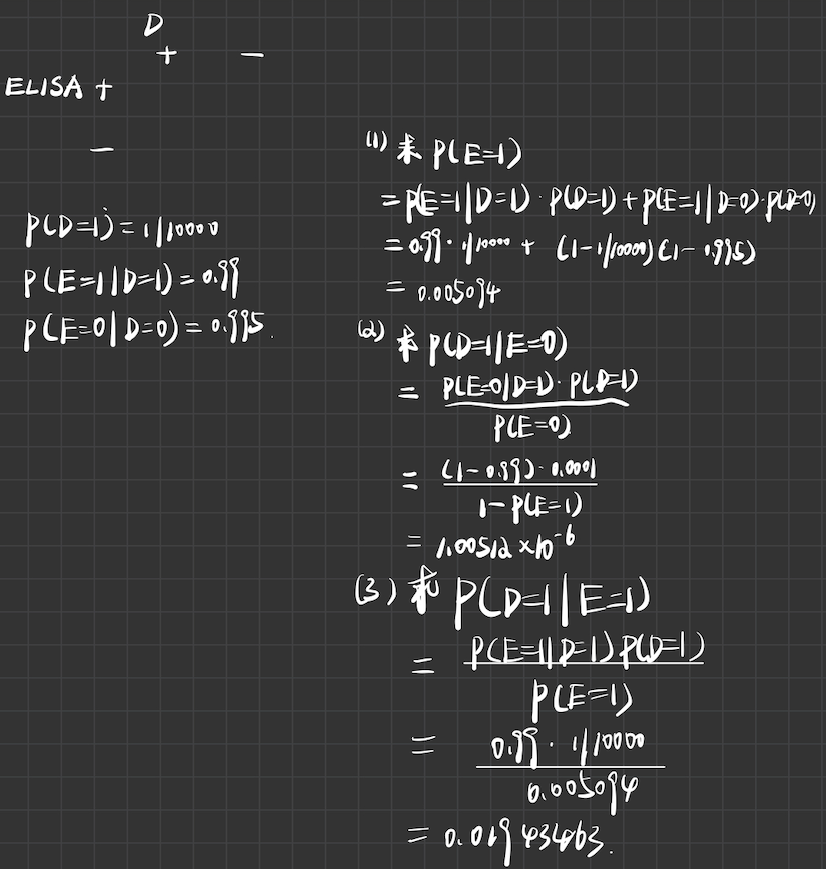 D
+ −
ELISA +
−
P(D=1)=1/10000
P(E=1|D=1)=0.99
P(E=0|D=0)=0.995.
(1) 求 P(E=1)
=P(E=1|D=1)·P(D=1)+P(E=1|D=0)·P(D=0)
=0.99·1/10000 + (1-1/10000)(1-0.995)
= 0.005094
(2) 求 P(D=1|E=0)
= P(E=0|D=1)·P(D=1)
P(E=0)
= (1-0.99)·0.0001
1-P(E=1)
= 1.00512×10⁻⁶
(3) 求 P(D=1|E=1)
= P(E=1|D=1)P(D=1)
P(E=1)
= 0.99·1/10000
0.005094
= 0.01943463.